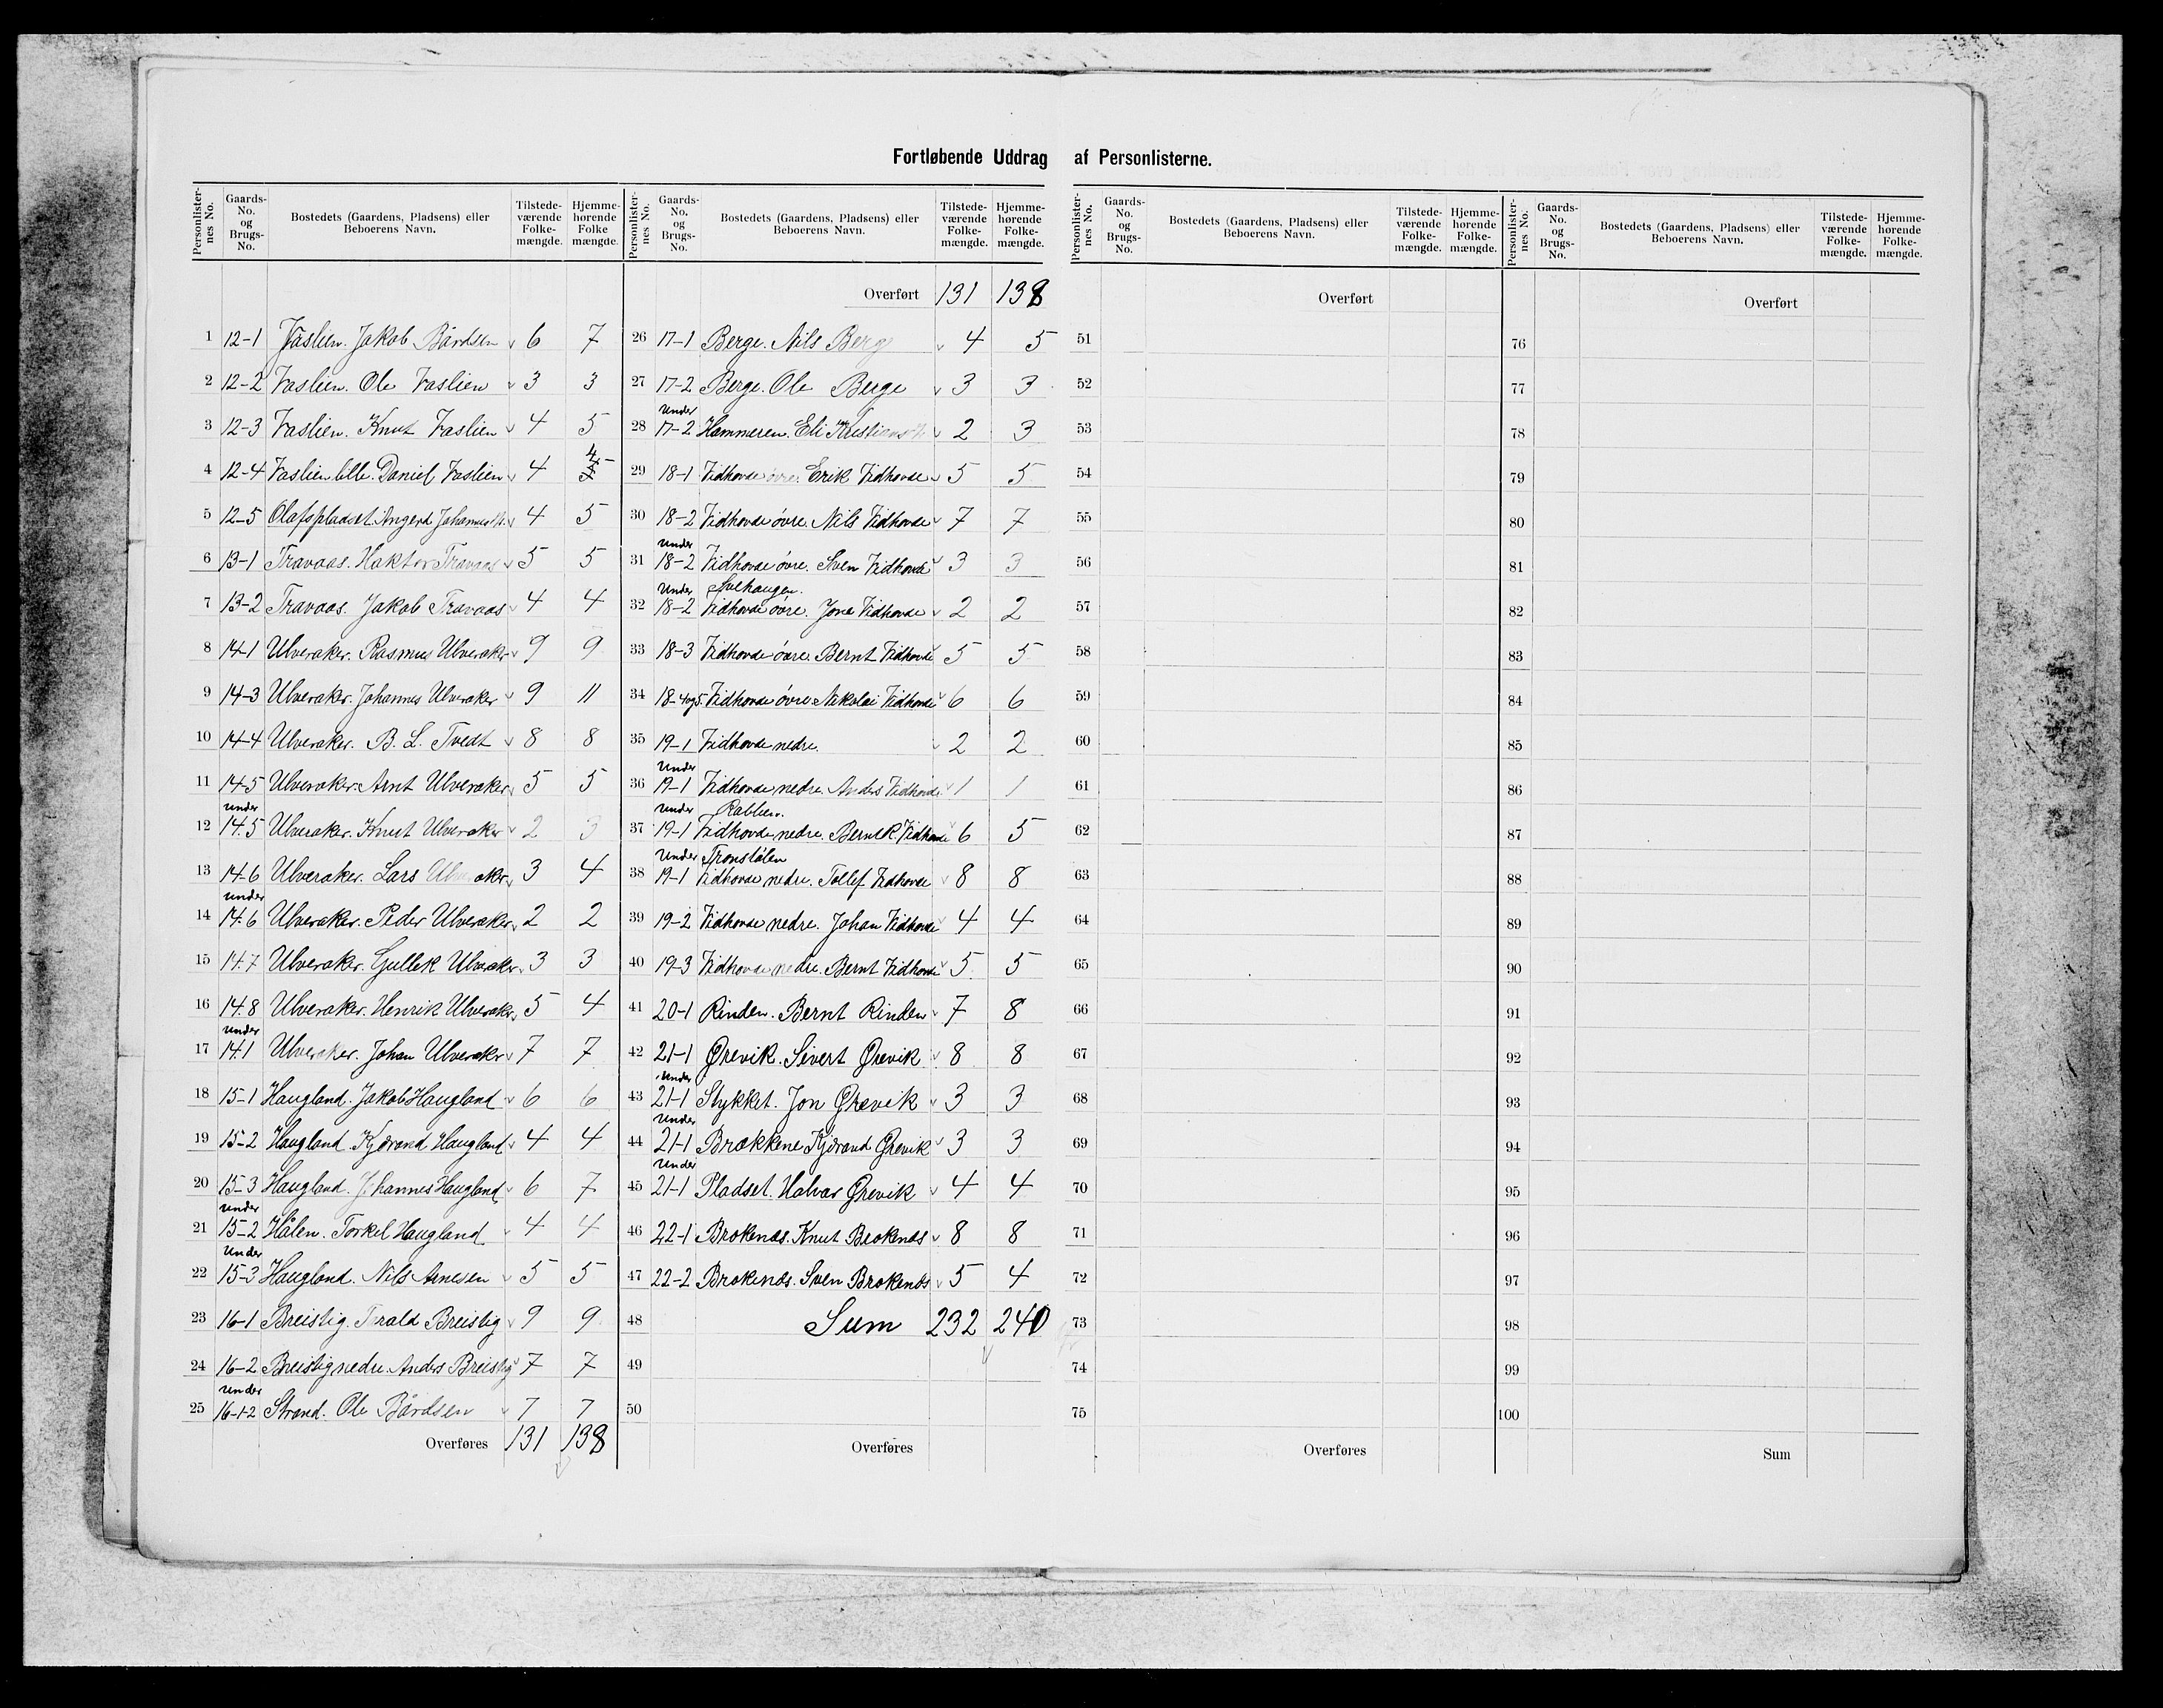 Fortløbende Uddrag af Personlisterne.
Personlisternes No. Gaards-No. og Brugs-No. Bostedets (Gaardens, Pladsens) eller Beboerens Navn. Tilstedeværende Folkemængde. Hjemmehørende Folkemængde.
1 12-1 Jakob Bårdsen 6 7
2 12-2 Vaslien. Ole Vaslien 3 3
3 12-3 Vaslien. Knut Vaslien 4 5
4 12-4 Vaslien lille. Daniel Vaslien 4 4
5 12-5 Olafspladset. Johannes 4 5
6 13-1 Travaas. Haktor Travaas 5 5
7 13-2 Travaas. Jakob Travaas 4 4
8 14-1 Ulveraker. Rasmus Ulveraker 9 9
9 14-3 Ulveraker. Johannes Ulveraker 9 11
10 14-4 Ulveraker. B. L. Tvedt 8 8
11 14-5 Ulveraker. Arnt Ulveraker 5 5
12 under 14.5 Ulveraker. Knut Ulveraker 2 3
13 14-6 Ulveraker. Lars Ulveraker 3 4
14 under 14.6 Ulveraker. Peder Ulveraker 2 2
15 14.7 Ulveraker. Gullek Ulveraker 3 3
16 14.8 Ulveraker. Henrik Ulveraker 5 4
17 under 14.1 Ulveraker. Johan Ulveraker 7 7
18 15-1 Haugland. Jakob Haugland 6 6
19 15-2 Haugland. Kjærand Haugland 4 4
20 15-3 Haugland. Johannes Haugland 6 7
21 under 15-2 Hålen. Torkel Haugland 4 4
22 under 15-3 Haugland. Nils Arnesen 5 5
23 16-1 Breistig. Tarald Breistig 9 9
24 16-2 Breistig nedre. Anders Breistig 7 7
25 under 16-1-2 Strand. Ole Bårdsen 7 7
Overføres 131 138
Overført 131 138
26 17-1 Berge. Nils Berge 4 5
27 17-2 Berge. Ole Berge 3 3
28 under 17-2 Hammeren. Eli 2 3
29 18-1 Vidhovde øvre. Erik Vidhovde 5 5
30 18-2 Vidhovde øvre. Nils Vidhovde 7 7
31 under 18-2 Vidhovde øvre. Sven Vidhovde 3 3
32 under 18-2 Solhaugen. Vidhovde øvre. Jone Vidhovde 2 2
33 18-3 Vidhovde øvre. Bernt Vidhovde 5 5
34 18-4og5. Vidhovde øvre. Nikolai Vidhovde 6 6
35 19-1 Vidhovde nedre. 2 2
36 under 19-1 Vidhovde nedre. Anders Vidhovde 1 1
37 under 19-1 Rablien. Vidhovde nedre. Bernt K. Vidhovde 6 5
38 under 19-1 Tronstølen Vidhovde nedre. Tollef Vidhovde 8 8
39 19-2 Vidhovde nedre. Johan Vidhovde 4 4
40 19-3 Vidhovde nedre. Bernt Vidhovde 5 5
41 20-1 Rinden. Bernt Rinden 7 8
42 21-1 Ørevik. Sivert Ørevik 8 8
43 under 21-1 Stykket. Jon Ørevik 3 3
44 under 21-1 Brækkene Kjærand Ørevik 3 3
45 under 21-1 Pladset. Halvar Ørevik 4 4
46 22-1 Brokenæs. Knut Brokenæs 8 8
47 22-2 Brokenæs. Sven Brokenæs 5 4
48 Sum 232 240
49
50
Overføres
Personlisternes No. Gaards-No. og Brugs-No. Bostedets (Gaardens, Pladsens) eller Beboerens Navn. Tilstedeværende Folkemængde. Hjemmehørende Folkemængde.
Overført
51
52
53
54
55
56
57
58
59
60
61
62
63
64
65
66
67
68
69
70
71
72
73
74
75
Overføres
Overført
76
77
78
79
80
81
82
83
84
85
86
87
88
89
90
91
92
93
94
95
96
97
98
99
100
Sum